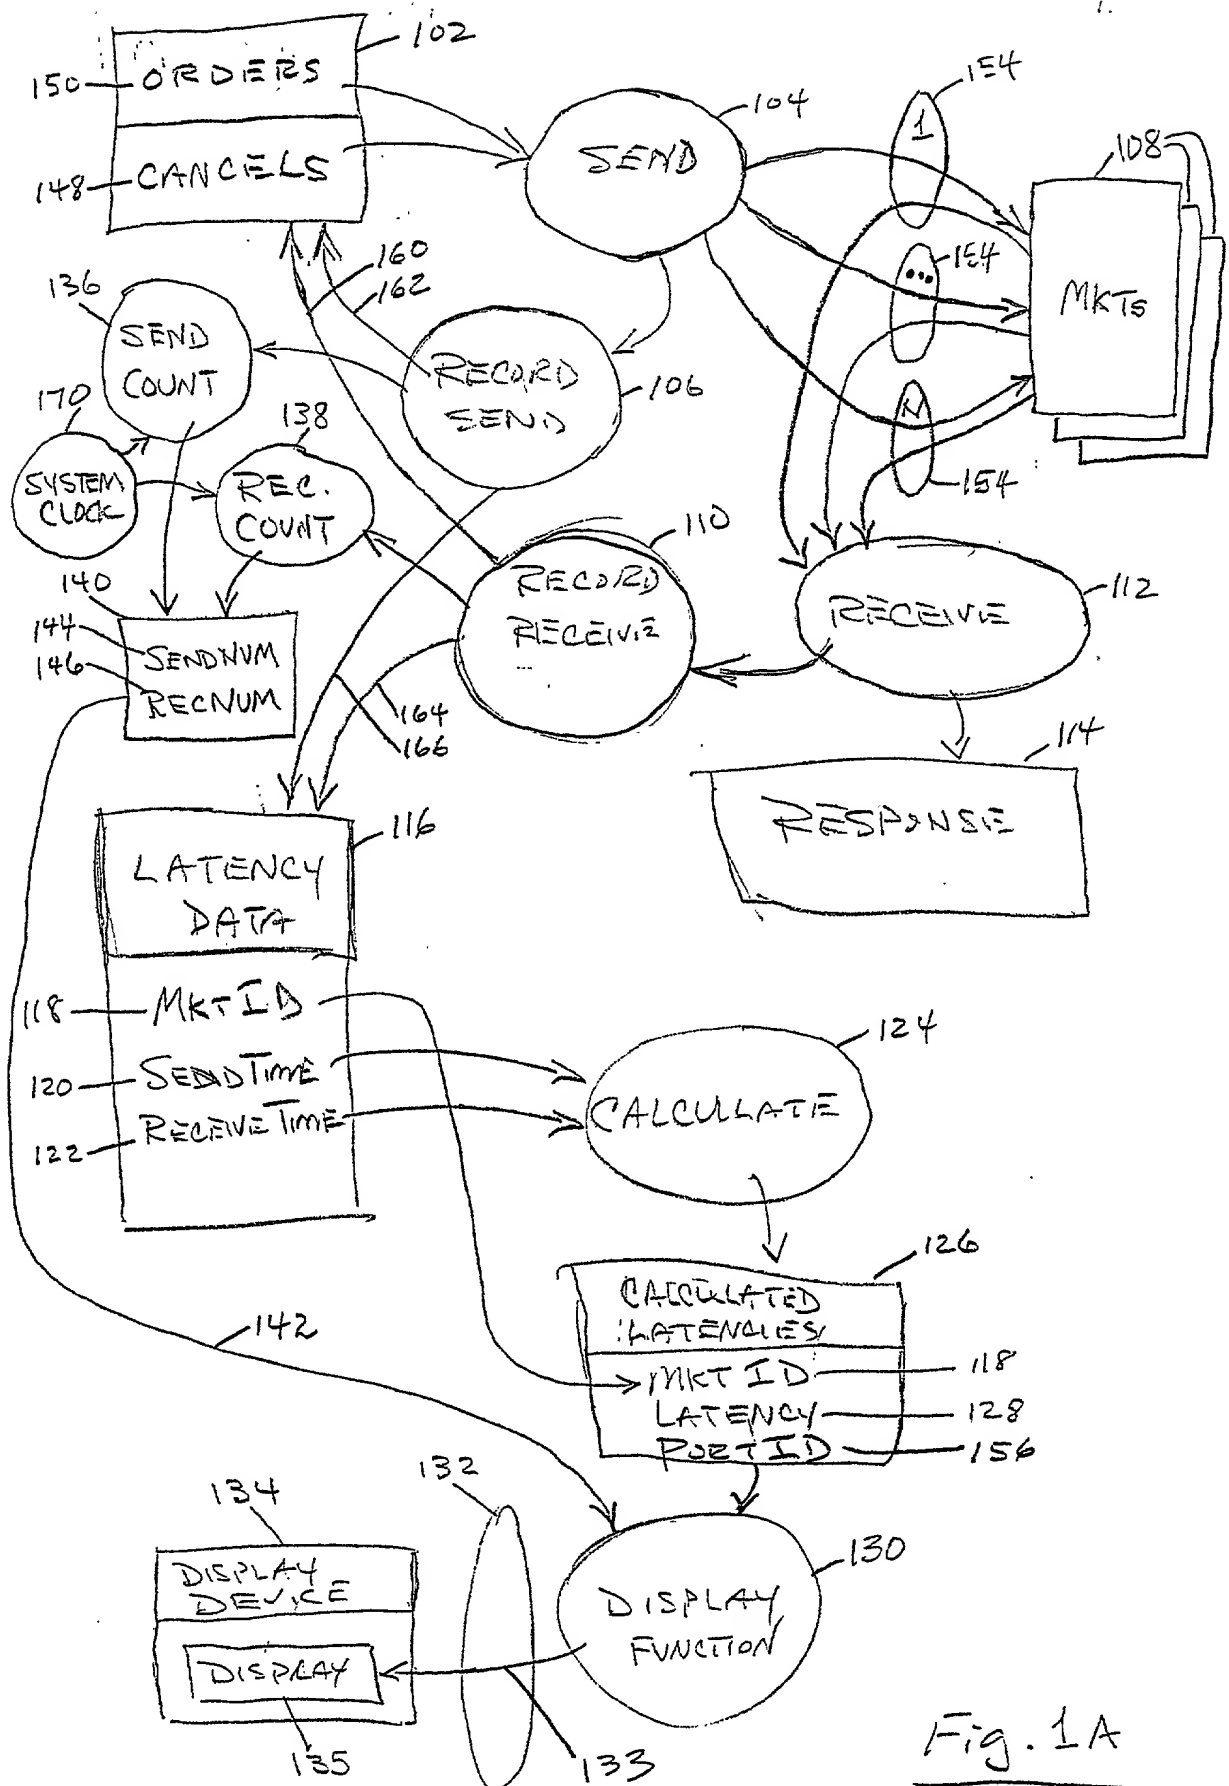 102
150 ORDERS
148 CANCELS
104
SEND
154
1
154
...
N
154
108
MKTS
160
162
136
SEND
COUNT
170
SYSTEM
CLOCK
138
REC.
COUNT
RECORD
SEND
106
110
RECORD
RECEIVE
RECEIVE
112
140
144 SENDNUM
146 RECNUM
164
166
114
RESPONSE
116
LATENCY
DATA
118 MKTID
120 SENDTIME
122 RECEIVETIME
124
CALCULATE
126
CALCULATED
LATENCIES
MKT ID 118
LATENCY 128
PORTID 156
142
132
134
DISPLAY
DEVICE
DISPLAY
135
133
130
DISPLAY
FUNCTION
Fig. 1A